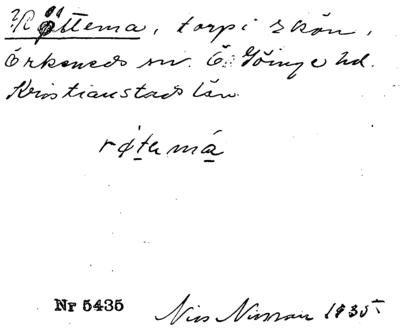 Röttema, torp i Skån,
Örkeneds sn. Ö. Göinge hd.
Kristianstads län.
Nr 5435
Nils Nilsson 1935